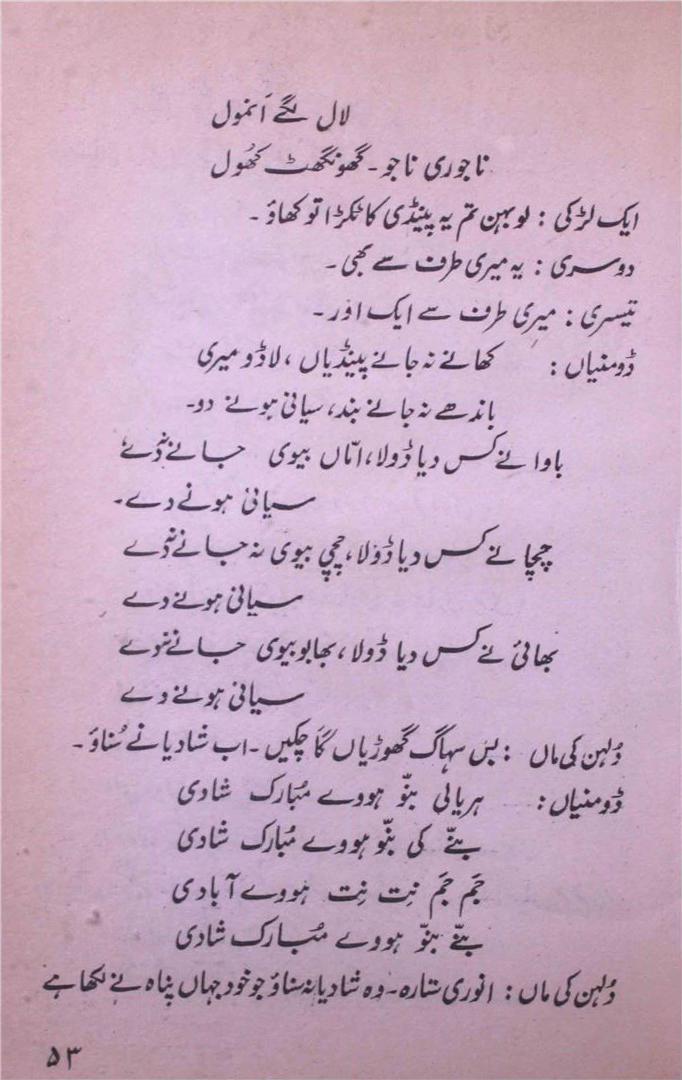 لال لگے اَنمول
ناجوری ناجو۔ گھونگھٹ کھُول
ایک لڑکی : لو بہن تم یہ پینڈی کا ٹکڑا تو کھاؤ۔
دوسری : یہ میری طرف سے بھی۔
تیسری : میری طرف سے ایک اور۔
ڈومنیاں : کھانے نہ جانے پینڈیاں ، لاڈو میری
باندھے نہ جانے بند، سیانی ہونے دو۔
باوا نے کس دیا ڈولا، امّاں بیوی جانے نہ دے
سیانی ہونے دے۔
چچا نے کس دیا ڈولا، چچی بیوی نہ جانے نہ دے
سیانی ہونے دے
بھائی نے کس دیا ڈولا، بھابو بیوی جانے نہ دے
سیانی ہونے دے
دُلہن کی ماں : بس سہاگ گھوڑیاں گا چکیں۔ اب شادیانے سُناؤ۔
ڈومنیاں : ہریالی بنّو ہووے مُبارک شادی
بنّے کی بنّو ہووے مُبارک شادی
جَم جَم نِت نِت ہووے آبادی
بنّے بنّو ہووے مُبارک شادی
دُلہن کی ماں : انوری ستارہ۔ وہ شادیانہ سناؤ جو خود جہاں پناہ نے لکھا ہے
۵۳